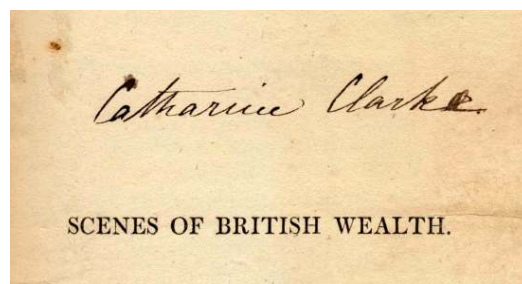 Catharine Clarke
SCENES OF BRITISH WEALTH.